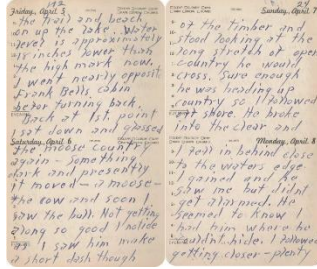 Friday, April 5
the trail and beach
on up the lake. Water
level is approximately
18 inches lower than
the high mark now.
I went nearly opposit
Frank Bells cabin
befor turning back.
Back at 1st. point
I sat down and glassed
Saturday, April 6
the moose country
again - Something
dark and presently
it moved - a moose -
the cow and soon I
saw the bull. Not getting
along so good I notice
as I saw him make
a short dash though
Sunday, April 7
of the timber and
stood looking at the
long stretch of open
country he would
cross. Sure enough
he was heading up
country so I followed
at shore. He broke
into the clear and
Monday, April 8
I fell in behind close
to the waters edge.
I gained and he
saw me but didnt
get alarmed. He
seemed to know I
had him where he
couldn't hide. I followed
getting closer - plenty